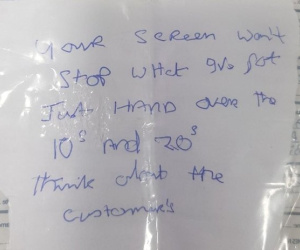 Your screen won't
stop what ive got
Just HAND over the
10s and 20s
think about the
customer's